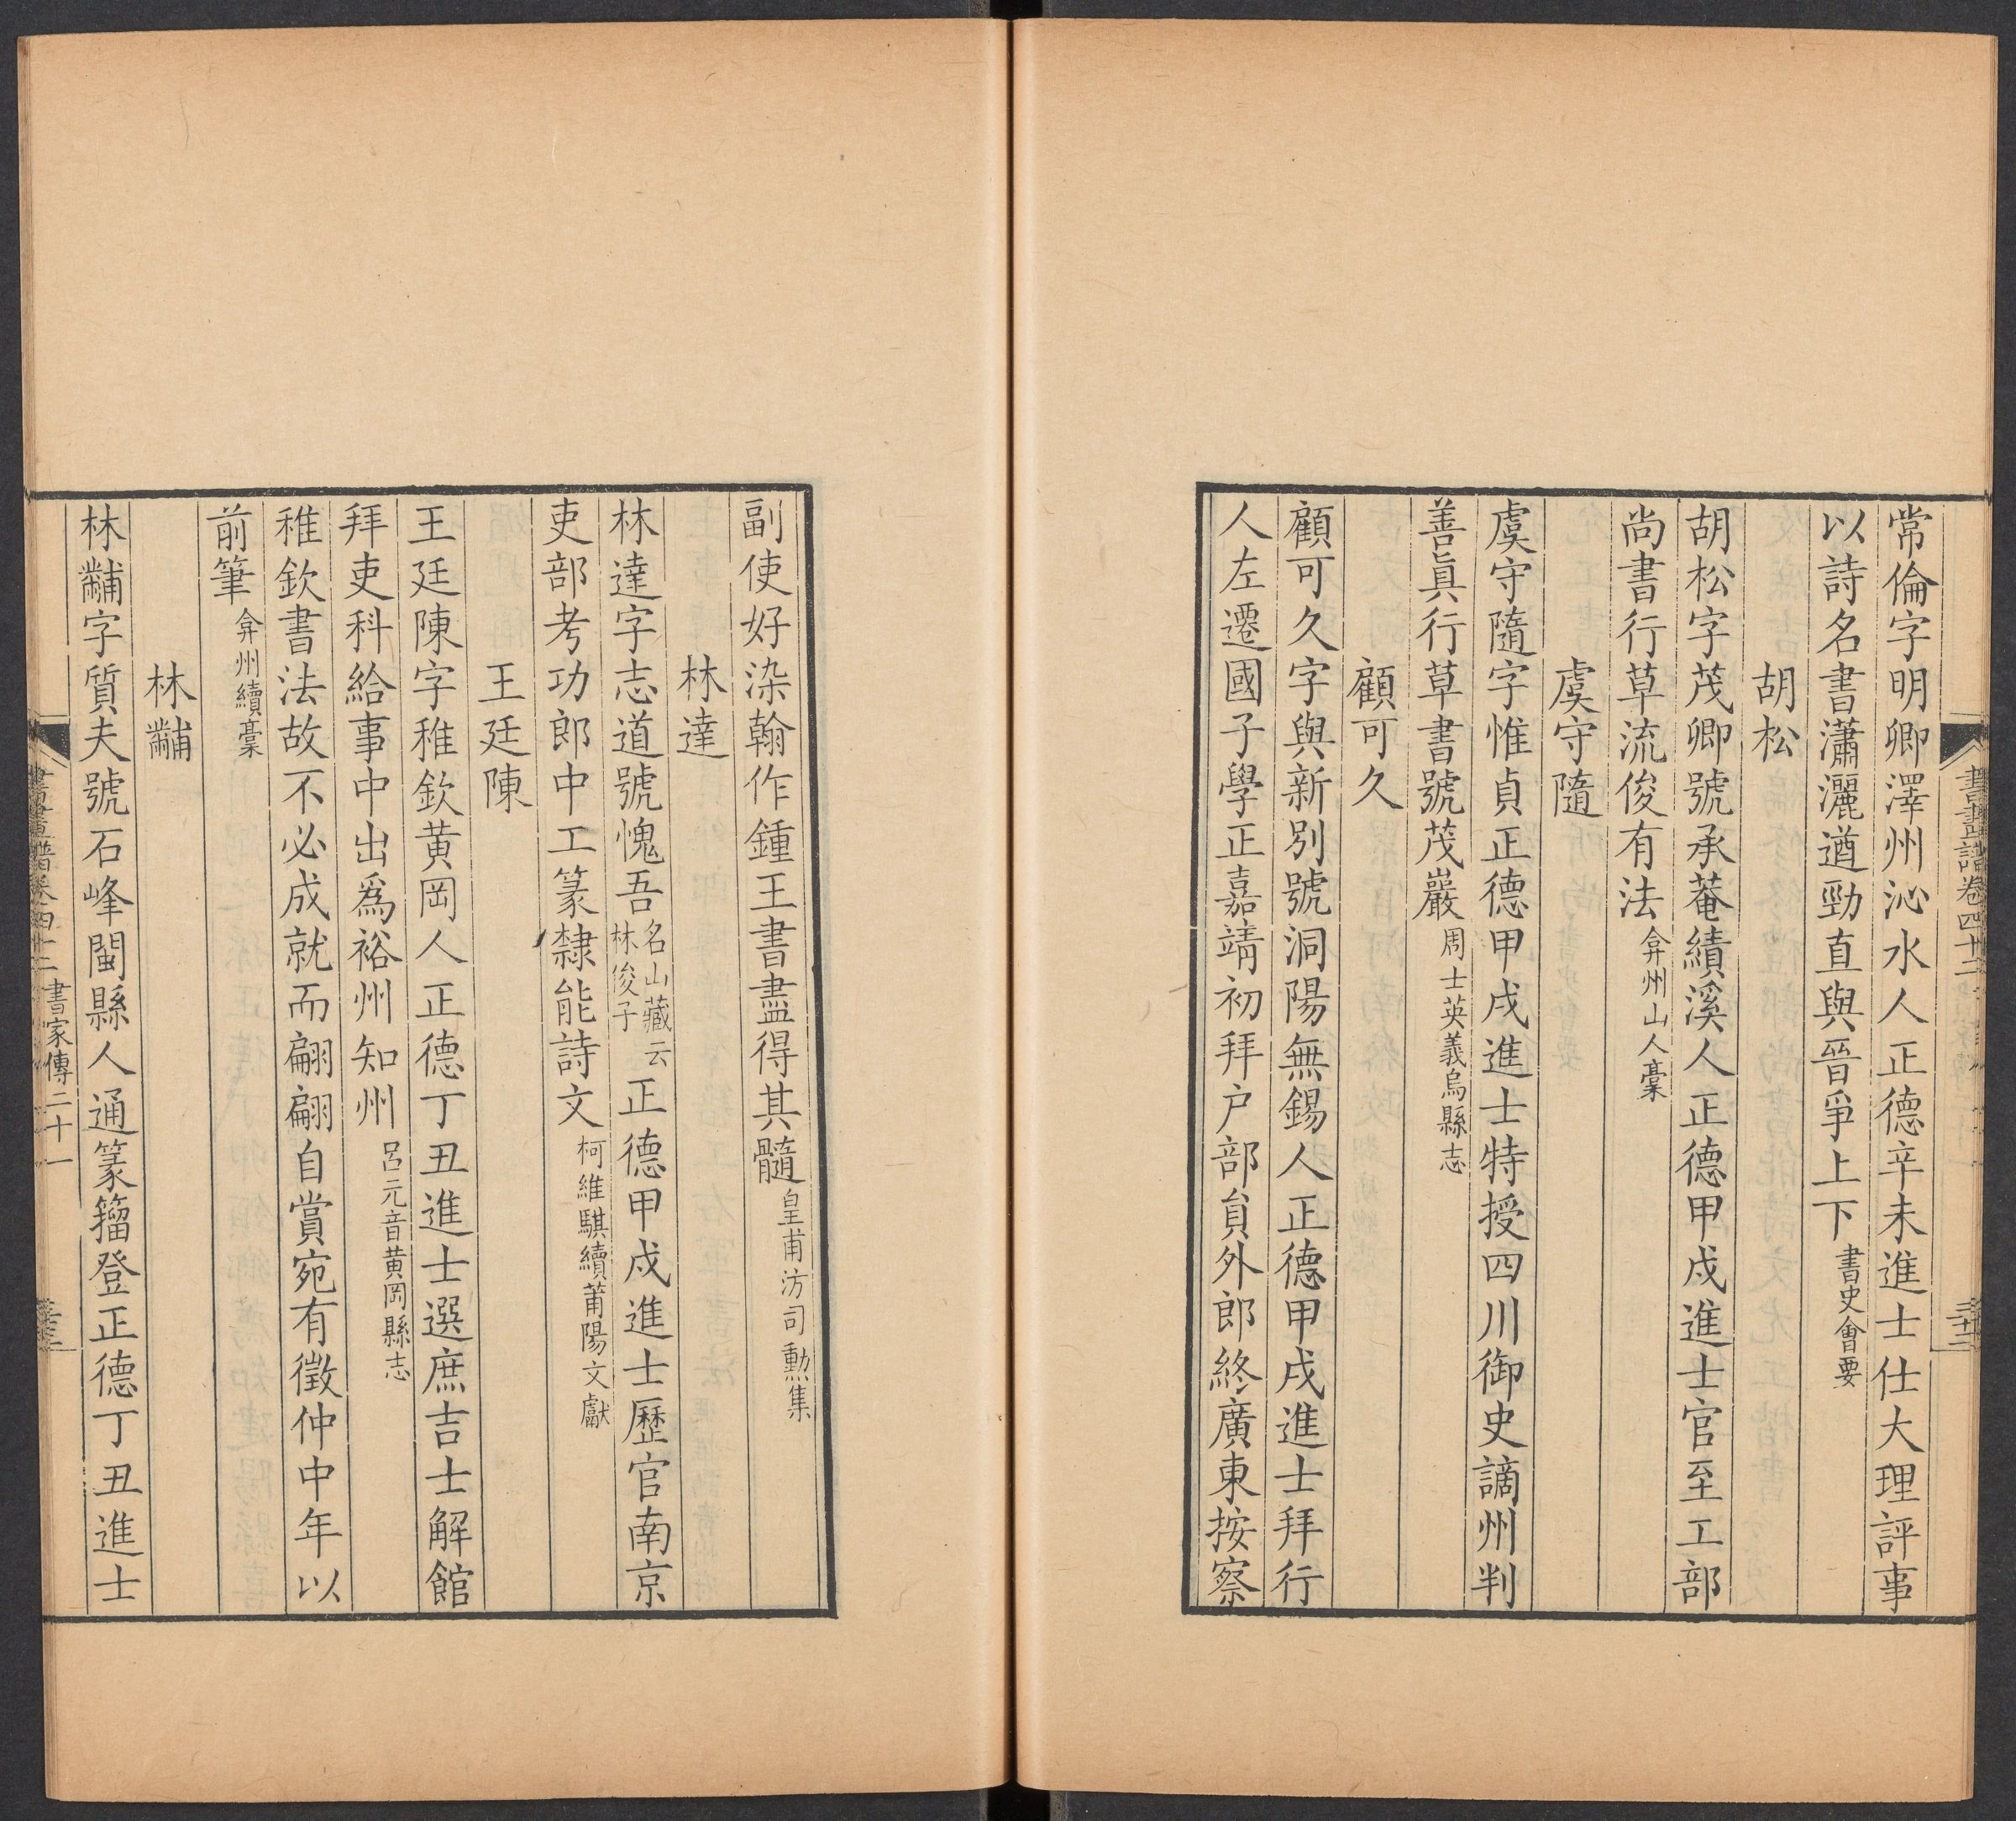 常倫字明卿澤州沁水人正德辛未進士仕大理評事
以詩名書瀟灑遒勁直與晉爭上下書史會要
胡松
胡松字茂卿號承菴績溪人正德甲戌進士官至工部
尚書行草流俊有法弇州山人稾
虞守隨
虞守隨字惟貞正德甲戌進士特授四川御史謫州判
善眞行草書號茂巖周士英義烏縣志
顧可久
顧可久字與新別號洞陽無錫人正德甲戌進士拜行
人左遷國子學正嘉靖初拜户部員外郎終廣東按察
副使好染翰作鍾王書盡得其髓皇甫汸司勳集
林達
林達字志道號愧吾名山藏云林俊子正德甲戌進士歷官南京
吏部考功郎中工篆隸能詩文柯維騏續莆陽文獻
王廷陳
王廷陳字稚欽黄岡人正德丁丑進士選庶吉士解館
拜吏科給事中出爲裕州知州呂元音黄岡縣志
稚欽書法故不必成就而翩翩自賞宛有徵仲中年以
前筆弇州續稾
林黼
林黼字質夫號石峰閩縣人通篆籀登正德丁丑進士
書畫譜卷四十二 書家傳二十一